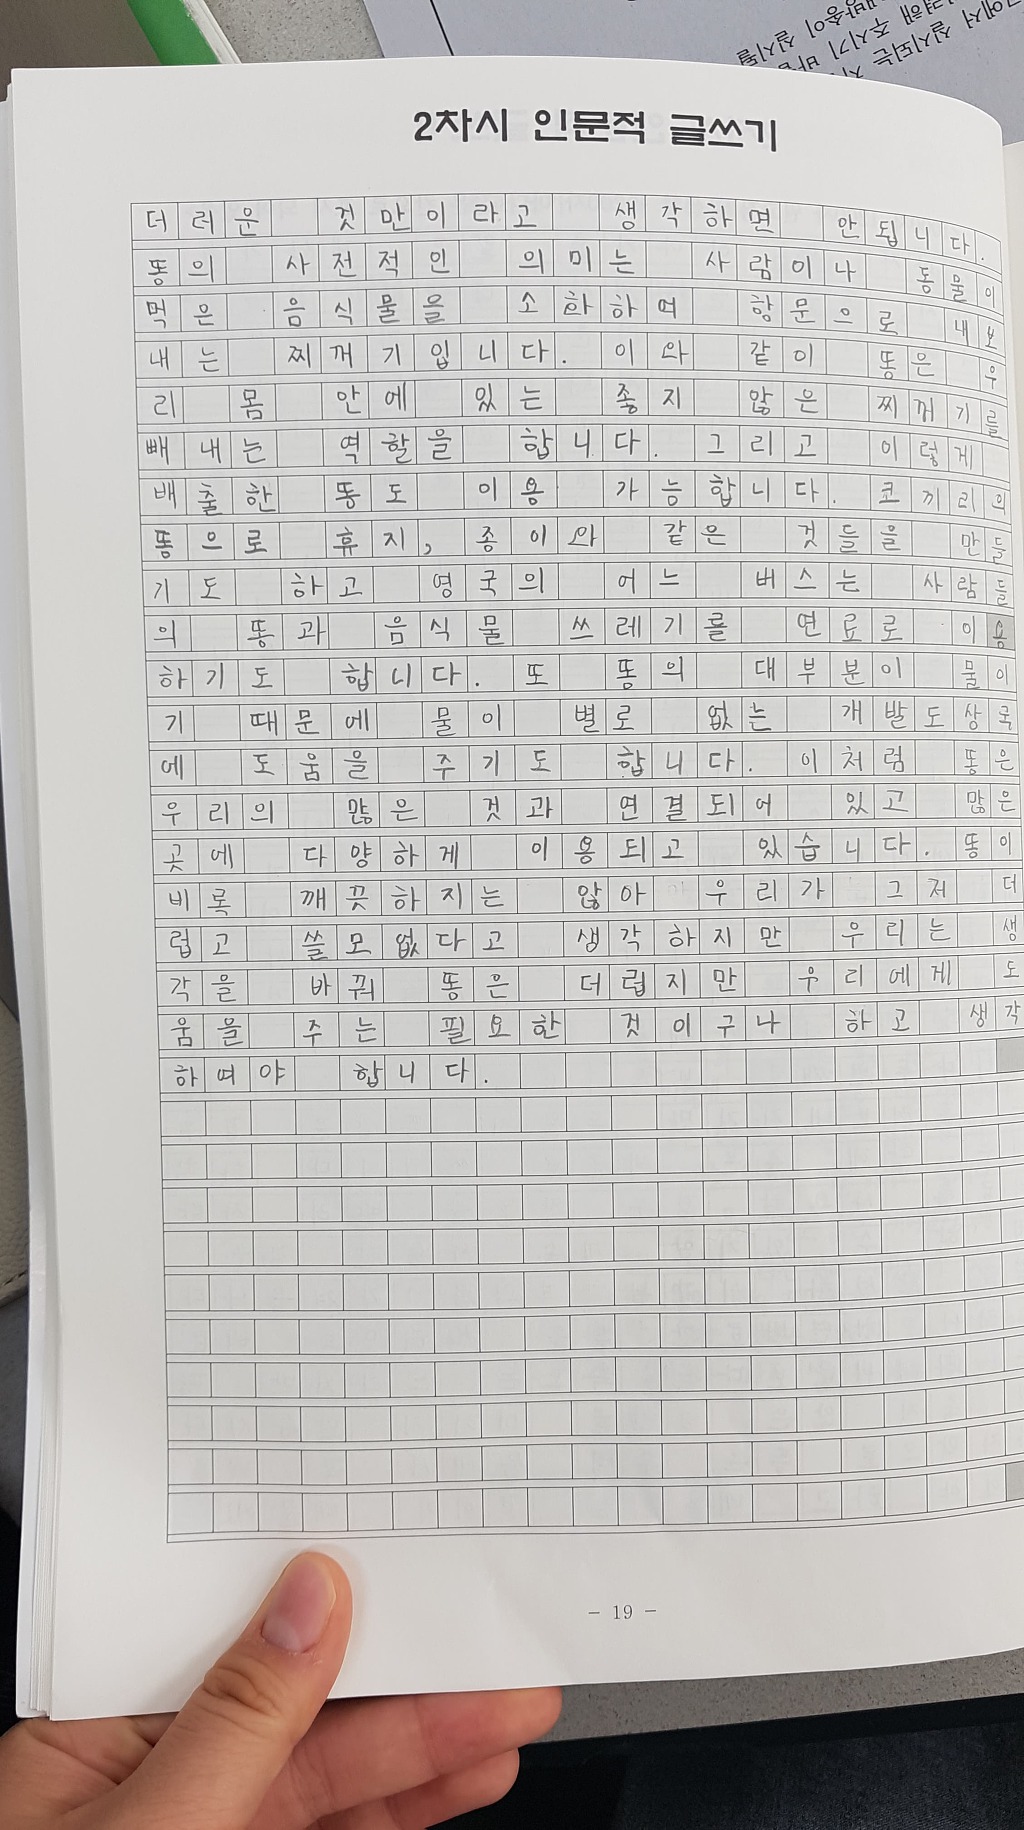 2차시 인문적 글쓰기
더러운 것만이라고 생각하면 안됩니다.
똥의 사전적인 의미는 사람이나 동물이
먹은 음식물을 소화하여 항문으로 내보
내는 찌꺼기입니다. 이와 같이 똥은 우
리 몸 안에 있는 좋지 않은 찌꺼기를
빼내는 역할을 합니다. 그리고 이렇게
배출한 똥도 이용 가능합니다. 코끼리의
똥으로 휴지, 종이와 같은 것들을 만들
기도 하고 영국의 어느 버스는 사람들
의 똥과 음식물 쓰레기를 연료로 이용
하기도 합니다. 또 똥의 대부분이 물이
기 때문에 물이 별로 없는 개발도상국
에 도움을 주기도 합니다. 이처럼 똥은
우리의 많은 것과 연결되어 있고 많은
곳에 다양하게 이용되고 있습니다. 똥이
비록 깨끗하지는 않아 우리가 그저 더
럽고 쓸모없다고 생각하지만 우리는 생
각을 바꿔 똥은 더럽지만 우리에게 도
움을 주는 필요한 것이구나 하고 생각
하여야 합니다.
- 19 -